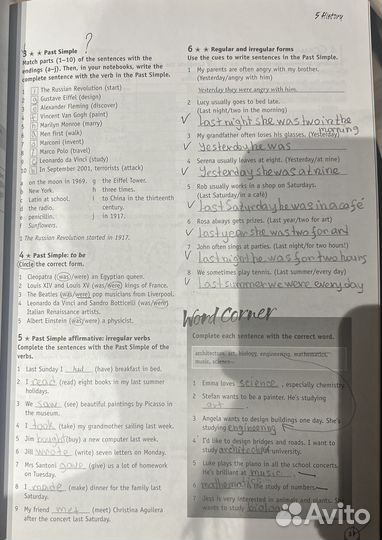 5 History
?
3 ★★ Past Simple
Match parts (1–10) of the sentences with the
endings (a–j). Then, in your notebooks, write the
complete sentence with the verb in the Past Simple.
1 j The Russian Revolution (start)
2 Gustave Eiffel (design)
3 Alexander Fleming (discover)
4 Vincent Van Gogh (paint)
5 Marilyn Monroe (marry)
6 Men first (walk)
7 Marconi (invent)
8 Marco Polo (travel)
9 Leonardo da Vinci (study)
10 In September 2001, terrorists (attack)
a on the moon in 1969. g the Eiffel tower.
b New York. h three times.
c Latin at school. i to China in the thirteenth
d the radio. century.
e penicillin. j in 1917.
f Sunflowers.
1 The Russian Revolution started in 1917.
4 ★ Past Simple: to be
Circle the correct form.
1 Cleopatra (was/were) an Egyptian queen.
2 Louis XIV and Louis XV (was/were) kings of France.
3 The Beatles (was/were) pop musicians from Liverpool.
4 Leonardo da Vinci and Sandro Botticelli (was/were)
Italian Renaissance artists.
5 Albert Einstein (was/were) a physicist.
5 ★ Past Simple affirmative: irregular verbs
Complete the sentences with the Past Simple of the
verbs.
1 Last Sunday I had (have) breakfast in bed.
2 I read (read) eight books in my last summer
holidays.
3 We saw (see) beautiful paintings by Picasso in
the museum.
4 I took (take) my grandmother sailing last week.
5 Jim bought (buy) a new computer last week.
6 Jill wrote (write) seven letters on Monday.
7 Mrs Santoni gave (give) us a lot of homework
on Tuesday.
8 I made (make) dinner for the family last
Saturday.
9 My friend met (meet) Christina Aguilera
after the concert last Saturday.
6 ★★ Regular and irregular forms
Use the cues to write sentences in the Past Simple.
1 My parents are often angry with my brother.
(Yesterday/angry with him)
Yesterday they were angry with him.
2 Lucy usually goes to bed late.
(Last night/two in the morning)
Last night she was two in the
morning
3 My grandfather often loses his glasses. (Yesterday)
Yesterday he was
4 Serena usually leaves at eight. (Yesterday/at nine)
Yesterday she was at nine
5 Rob usually works in a shop on Saturdays.
(Last Saturday/in a café)
Last Saturday he was in a café
6 Rosa always gets prizes. (Last year/two for art)
Last year she was two for art
7 John often sings at parties. (Last night/for two hours!)
Last night he was for two hours
8 We sometimes play tennis. (Last summer/every day)
Last summer we were every day
Word Corner
Complete each sentence with the correct word.
architecture, art, biology, engineering, mathematics,
music, science
1 Emma loves science, especially chemistry.
2 Stefan wants to be a painter. He's studying
art.
3 Angela wants to design buildings one day. She's
studying engineering
4 I'd like to design bridges and roads. I want to
study architecture at university.
5 Luke plays the piano in all the school concerts.
He's brilliant at music.
6 mathematics is the study of numbers.
7 Jess is very interested in animals and plants. She
wants to study biology
Avito